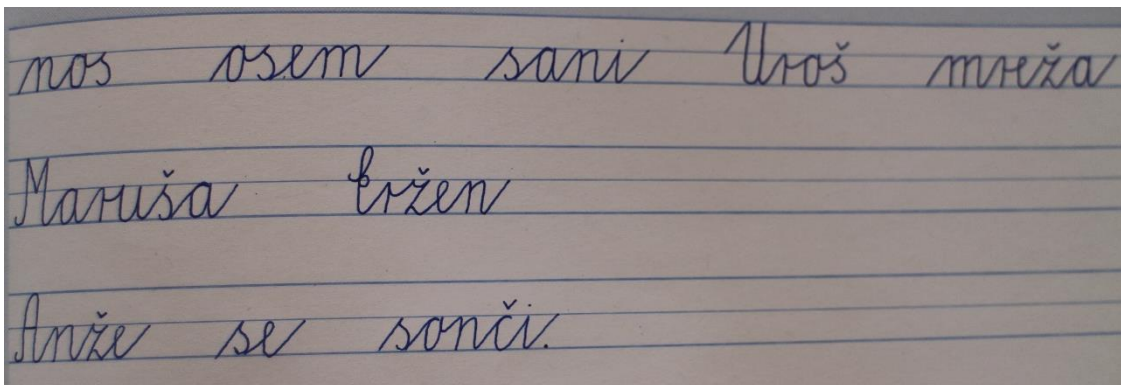 nos osem sani Uroš mreža
Maruša Eržen
Anže se sonči.